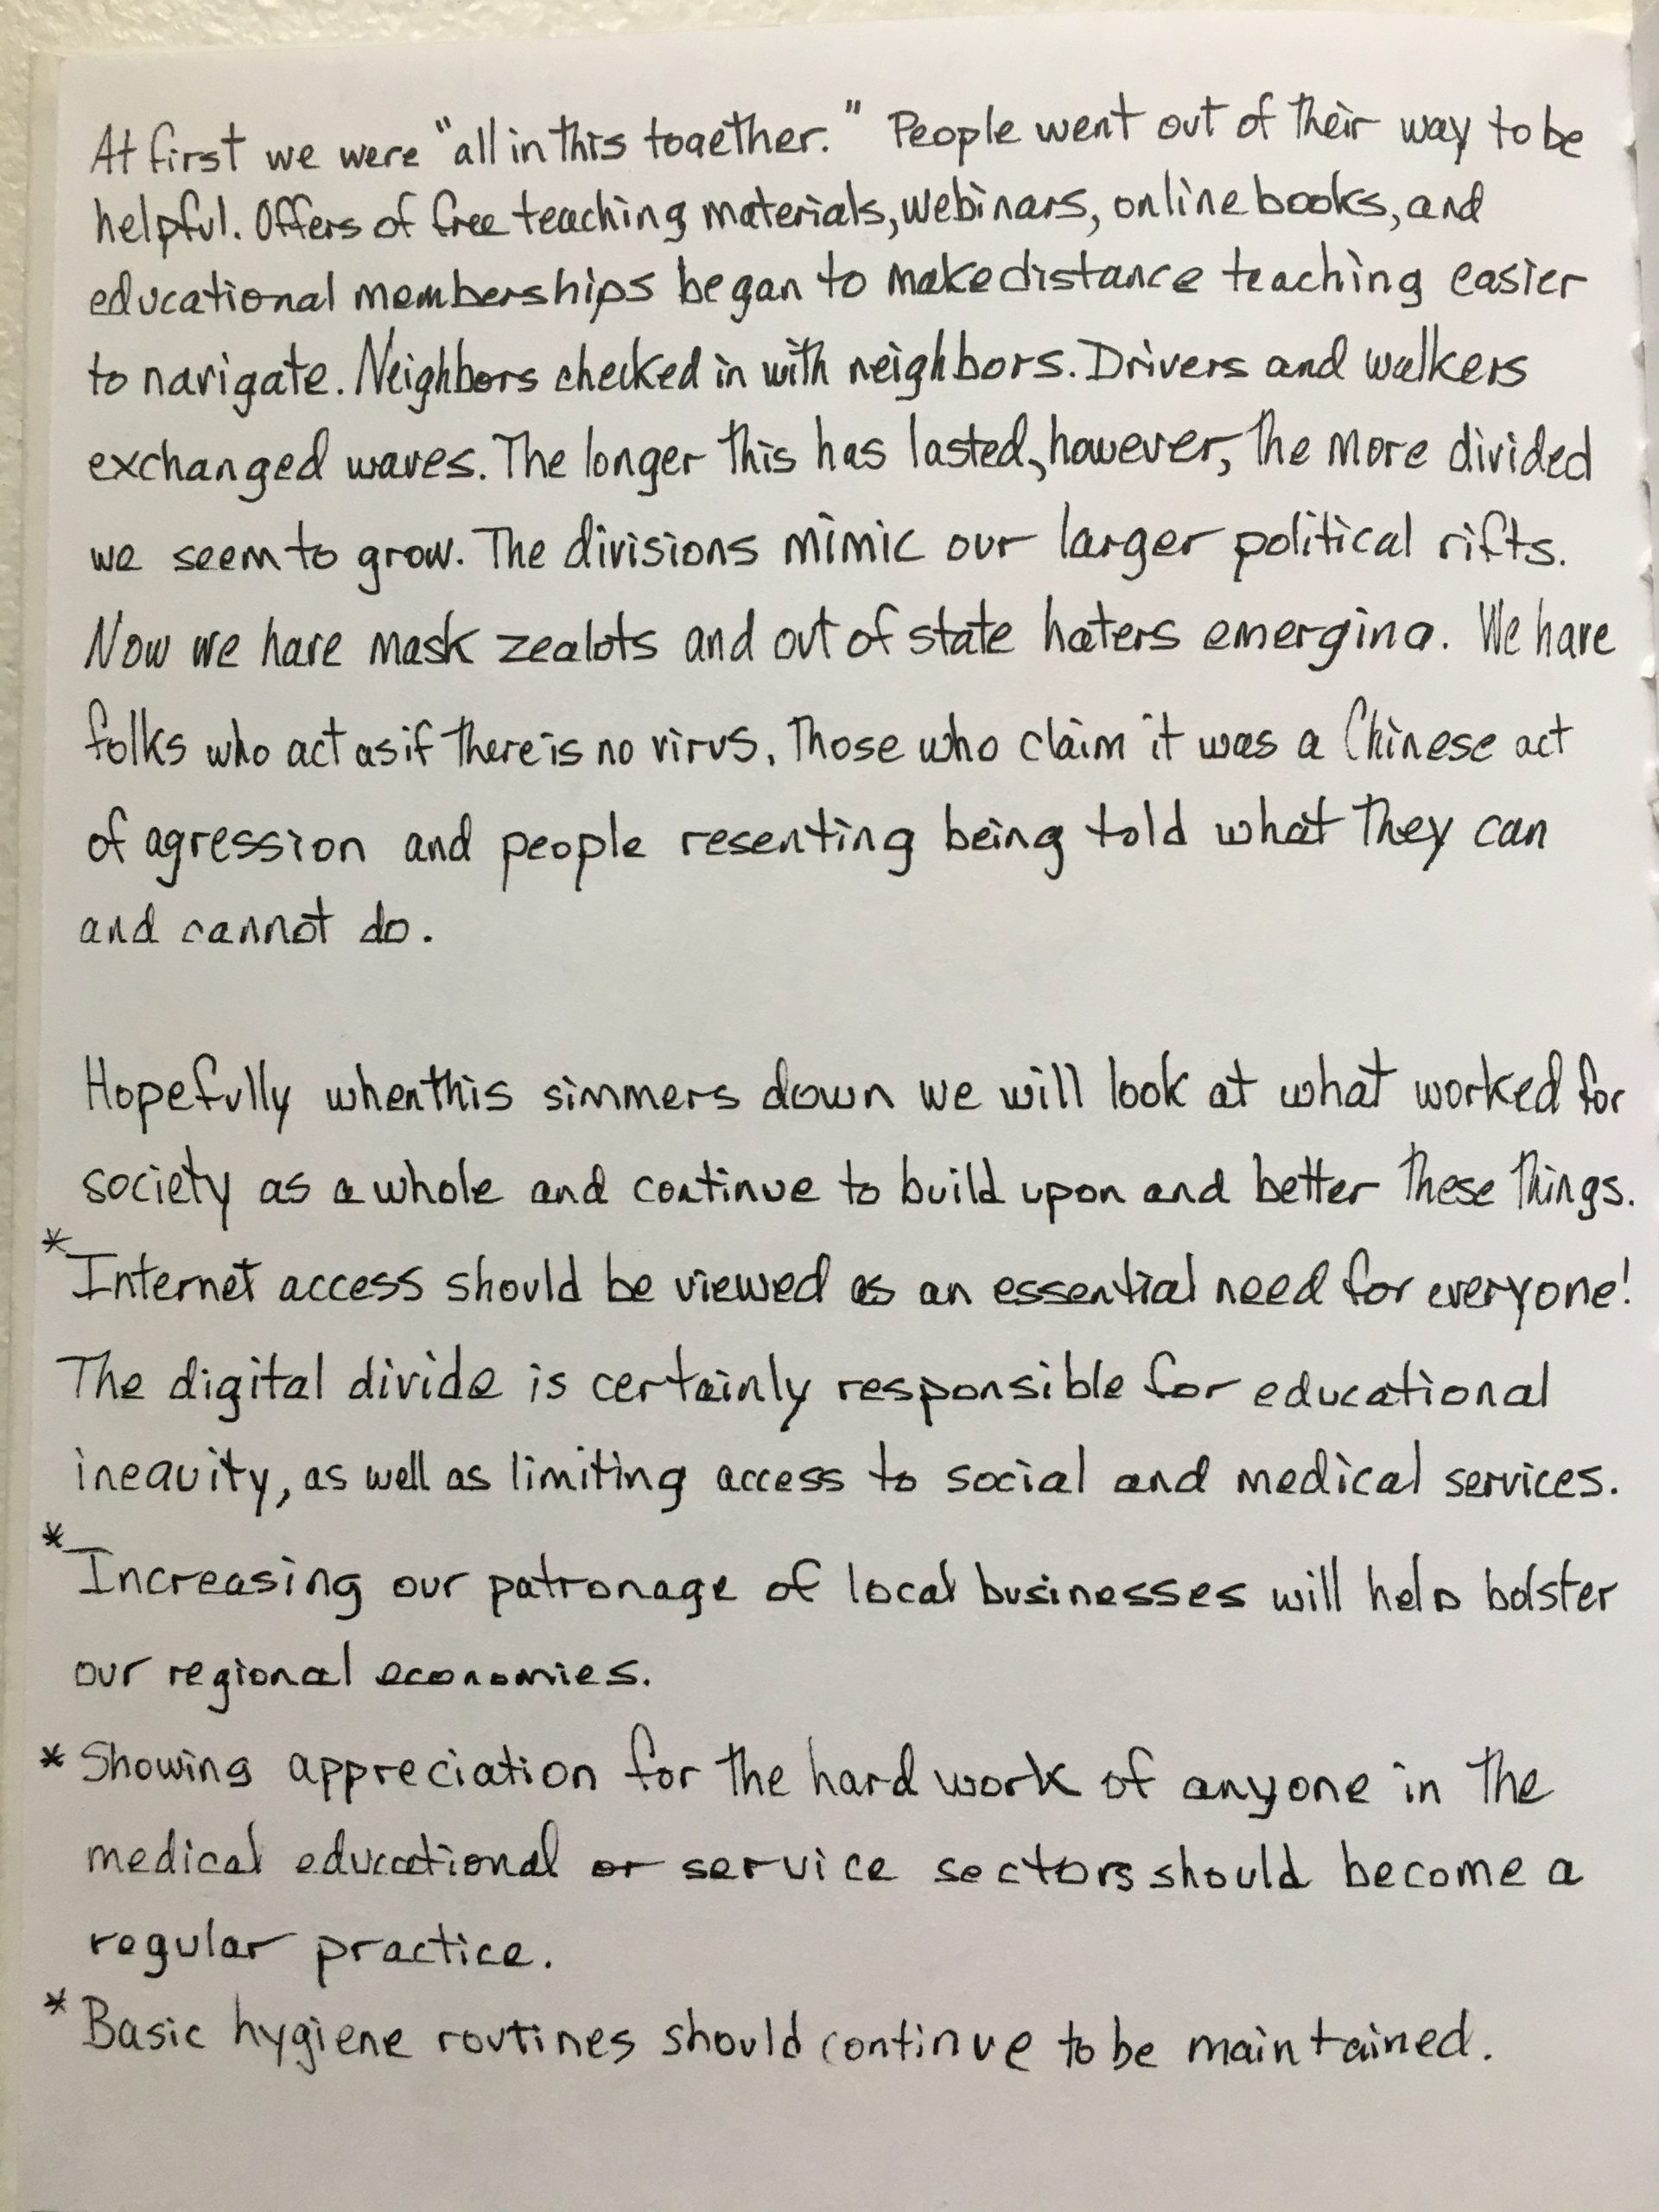 At first we were "all in this together." People went out of their way to be
helpful. Offers of free teaching materials, webinars, online books, and
educational memberships began to make distance teaching easier
to navigate. Neighbors checked in with neighbors. Drivers and walkers
exchanged waves. The longer this has lasted, however, the more divided
we seem to grow. The divisions mimic our larger political rifts.
Now we have mask zealots and out of state haters emerging. We have
folks who act as if there is no virus. Those who claim it was a Chinese act
of agression and people resenting being told what they can
and cannot do.
Hopefully when this simmers down we will look at what worked for
society as a whole and continue to build upon and better these things.
* Internet access should be viewed as an essential need for everyone!
The digital divide is certainly responsible for educational
inequity, as well as limiting access to social and medical services.
* Increasing our patronage of local businesses will help bolster
our regional economies.
* Showing appreciation for the hard work of anyone in the
medical educational or service sectors should become a
regular practice.
* Basic hygiene routines should continue to be maintained.